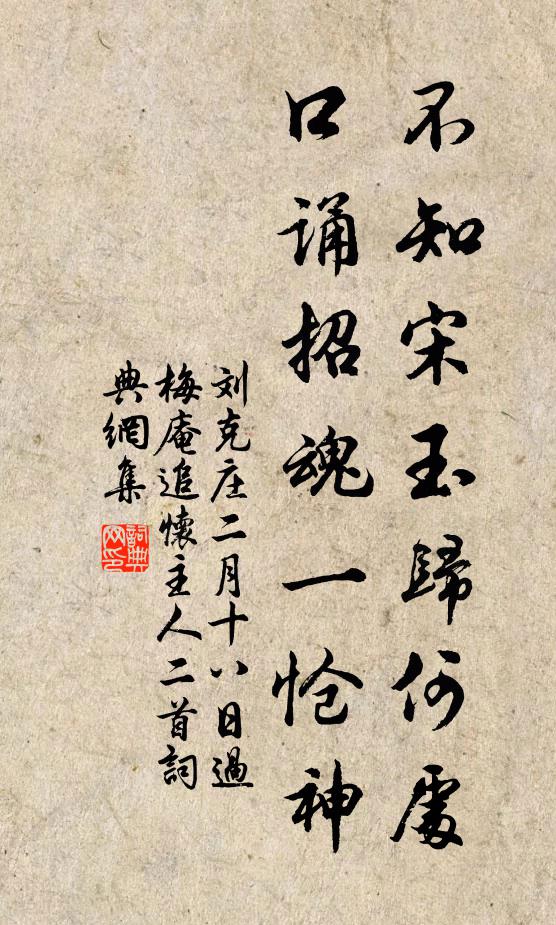 不知宋玉歸何處
口诵招魂一怆神
刘克庄二月十八日過
梅庵追懷主人二首詞
典網集
詞典
网印